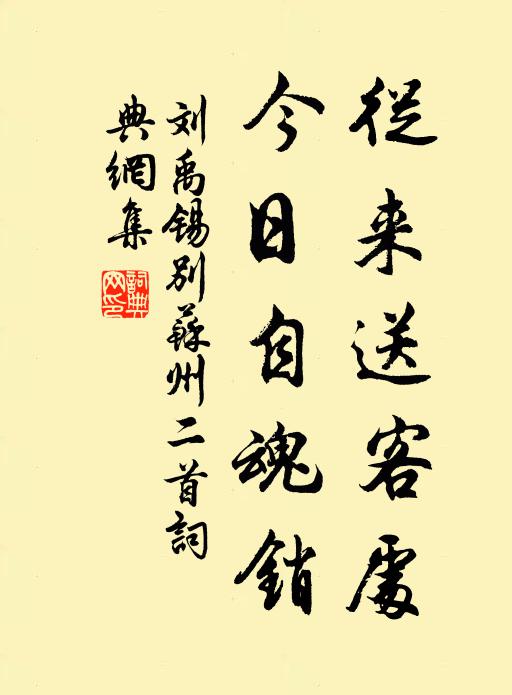 從来送客處
今日自魂銷
刘禹锡别蘇州二首詞
典網集
詞典网印